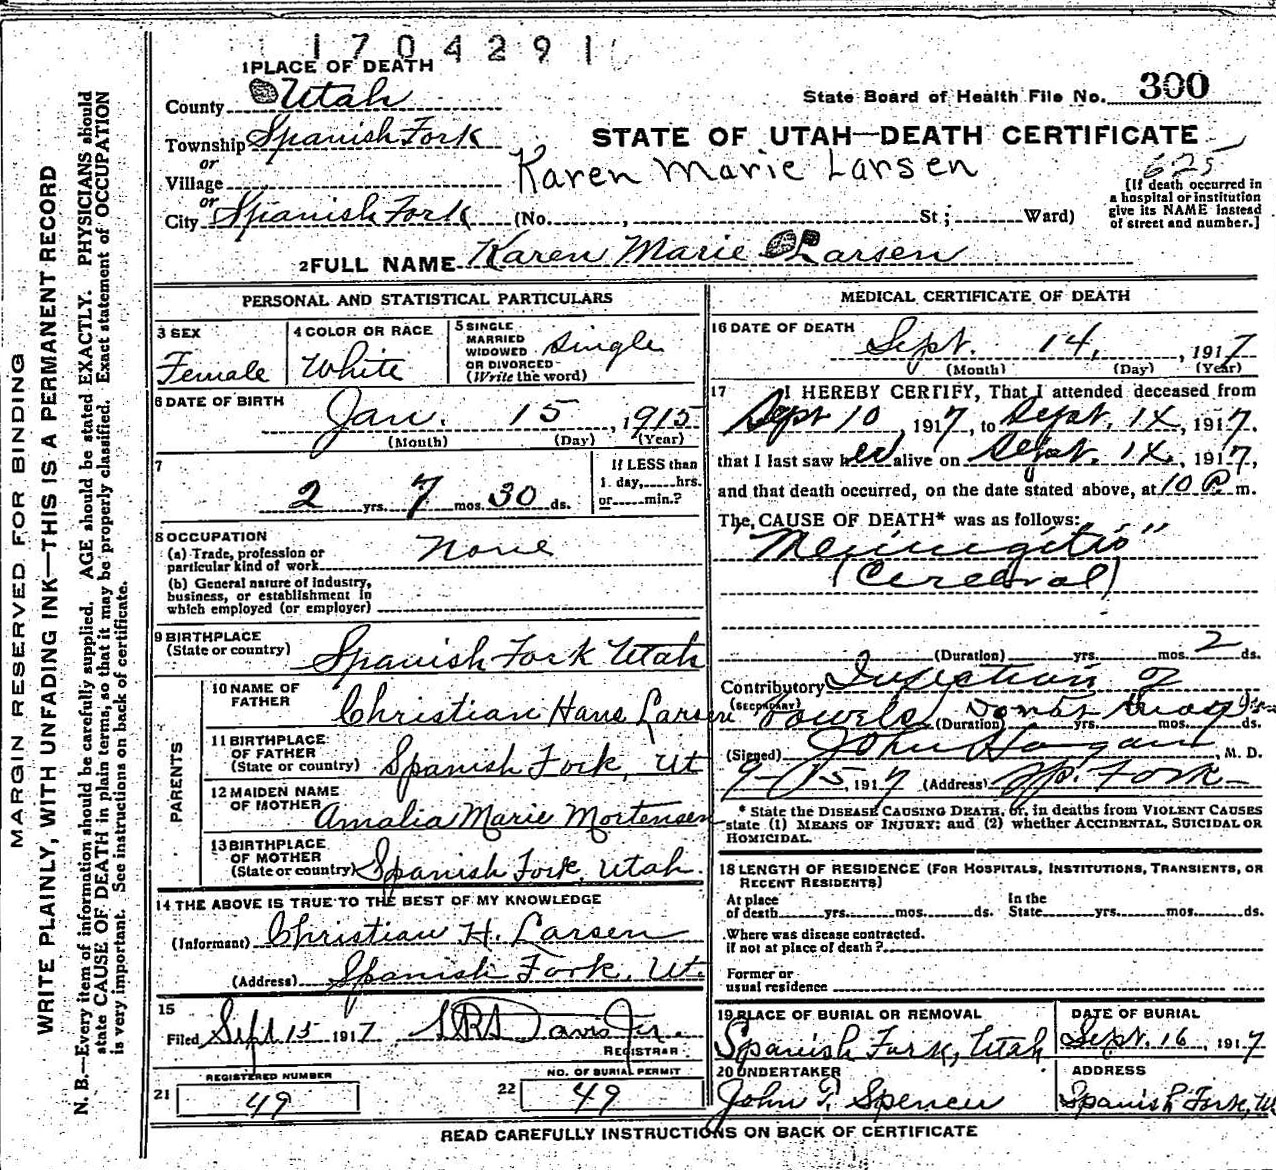 1704291
1 PLACE OF DEATH
County Utah
State Board of Health File No. 300
Township Spanish Fork
STATE OF UTAH—DEATH CERTIFICATE
or
Village
Karen Marie Larsen
625
[If death occurred in
a hospital or institution
give its NAME instead
of street and number.]
or
City Spanish Fork (No. , St ; Ward)
2 FULL NAME Karen Marie Larsen
PERSONAL AND STATISTICAL PARTICULARS
3 SEX
Female
4 COLOR OR RACE
White
5 SINGLE
MARRIED
WIDOWED
OR DIVORCED
(Write the word)
Single
6 DATE OF BIRTH
Jan. 15, 1915
(Month) (Day) (Year)
7
2 yrs. 7 mos. 30 ds.
If LESS than
1 day, hrs.
or min.?
8 OCCUPATION
(a) Trade, profession or
particular kind of work None
(b) General nature of industry,
business, or establishment in
which employed (or employer)
9 BIRTHPLACE
(State or country) Spanish Fork Utah
PARENTS
10 NAME OF
FATHER Christian Hans Larsen
11 BIRTHPLACE
OF FATHER
(State or country) Spanish Fork, Ut
12 MAIDEN NAME
OF MOTHER Amalia Marie Mortensen
13 BIRTHPLACE
OF MOTHER
(State or country) Spanish Fork, Utah.
14 THE ABOVE IS TRUE TO THE BEST OF MY KNOWLEDGE
(Informant) Christian H. Larsen
(Address) Spanish Fork, Ut.
15
Filed Sept 15 1917 Davis Jr.
REGISTRAR
REGISTERED NUMBER
21 49
NO. OF BURIAL PERMIT
22 49
MEDICAL CERTIFICATE OF DEATH
16 DATE OF DEATH
Sept. 14, 1917
(Month) (Day) (Year)
17 I HEREBY CERTIFY, That I attended deceased from
Sept 10, 1917, to Sept. 14, 1917,
that I last saw her alive on Sept. 14, 1917,
and that death occurred, on the date stated above, at 10 P m.
The CAUSE OF DEATH* was as follows:
"Meningitis"
(Cerebral)
(Duration) yrs. mos. 2 ds.
Contributory Infection of
(SECONDARY) Bowels (Duration) yrs. mos. ds.
(Signed) John Hagan, M. D.
9-15, 1917 (Address) Sp. Fork
* State the DISEASE CAUSING DEATH, or, in deaths from VIOLENT CAUSES
state (1) MEANS OF INJURY; and (2) whether ACCIDENTAL, SUICIDAL OR
HOMICIDAL.
18 LENGTH OF RESIDENCE (FOR HOSPITALS, INSTITUTIONS, TRANSIENTS, OR
RECENT RESIDENTS)
At place
of death yrs. mos. ds.
In the
State yrs. mos. ds.
Where was disease contracted.
if not at place of death?
Former or
usual residence
19 PLACE OF BURIAL OR REMOVAL
Spanish Fork, Utah
DATE OF BURIAL
Sept. 16, 1917
20 UNDERTAKER
John P. Spencer
ADDRESS
Spanish Fork, Ut
READ CAREFULLY INSTRUCTIONS ON BACK OF CERTIFICATE
MARGIN RESERVED FOR BINDING
WRITE PLAINLY, WITH UNFADING INK—THIS IS A PERMANENT RECORD
N. B.—Every item of information should be carefully supplied. AGE should be stated EXACTLY. PHYSICIANS should
state CAUSE OF DEATH in plain terms, so that it may be properly classified. Exact statement of OCCUPATION
is very important. See instructions on back of certificate.